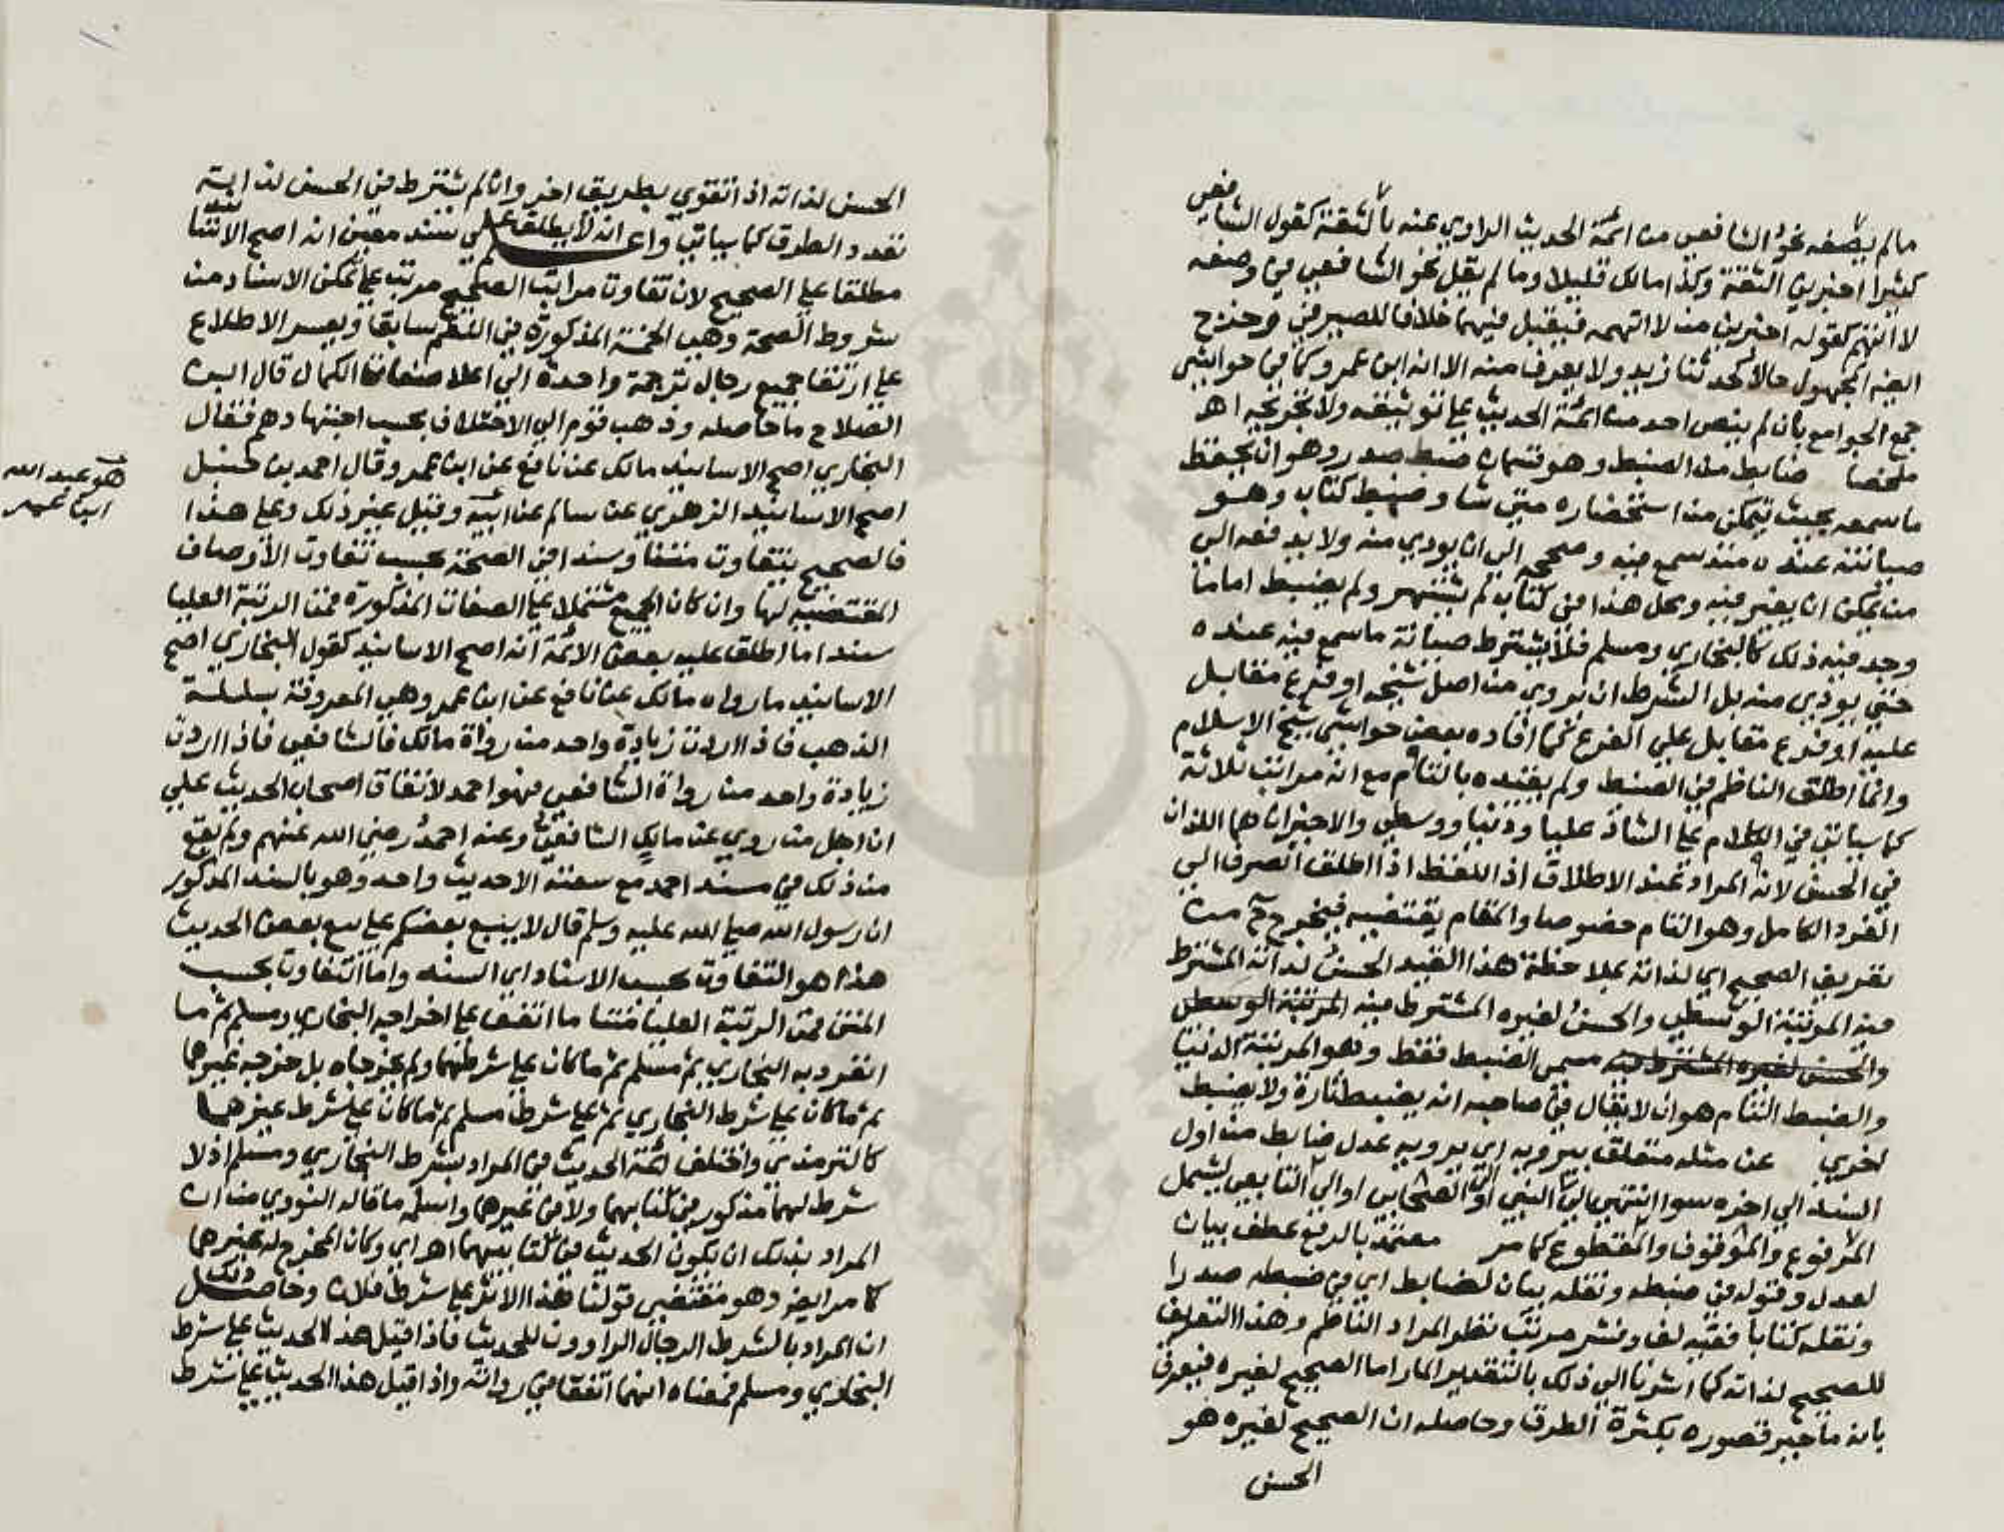 مالم يصفه نحو الشافعي من ائمة الحديث الراوي عنه بالثقة كقول الشافعي
كثيرا اخبرني الثقة وكذا مالك قليلا وما لم يقل نحو الشافعي في وصفه
لا اتهم كقوله اخبرني من لا اتهمه فيقبل فيهما خلافا للصيرفي وخرج
العين المجهول حالا كحدثنا زيد ولا يعرف منه الا انه ابن عمرو كما في حواشي
جمع الجوامع بان لم ينص احد من ائمة الحديث على توثيقه ولا تجريحه اهـ
ملخصا ضابط من الضبط وهو قسمان ضبط صدر وهو ان يحفظ
ما سمعه بحيث يتمكن من استحضاره متى شا وضبط كتاب وهو
صيانته عنده منذ سمع فيه وصححه الى ان يودي منه ولا يدفعه الى
من يمكن ان يغير فيه ومحل هذا في كتاب لم يشتهر ولم يضبط اما ما
وجد فيه ذلك كالبخاري ومسلم فلا يشترط صيانة ما سمع فيه عنده
حتى يودي منه بل الشرط ان يروي من اصل شيخه او فرع مقابل
عليه او فرع مقابل على الفرع كما افاده بعض حواشي شيخ الاسلام
وانما اطلق الناظم في الضبط ولم يقيده بالتام مع انه مراتب ثلاثة
كما سياتي في الكلام على الشاذ عليا ودنيا ووسطى والاخيران هما اللذان
في الحسن لانه المراد عند الاطلاق اذ اللفظ اذا اطلق انصرف الى
الفرد الكامل وهو التام خصوصا والمقام يقتضيه فيخرج ح من
تعريف الصحيح اي لذاته بملاحظة هذا القيد الحسن لذاته المشترط
فيه المرتبة الوسطى والحسن لغيره المشترط فيه المرتبة الوسطى
والحسن لغيره المشترط فيه مسمى الضبط فقط وهو المرتبة الدنيا
والضبط التام هو ان لا يقال في صاحبه انه يضبط تارة ولا يضبط
اخرى عن مثله متعلق بيرويه اي يرويه عدل ضابط من اول
السند الى اخره سوا انتهى الى النبي او الى الصحابي او الى التابعي ليشمل
المرفوع والموقوف والمقطوع كما مر معتمد بالرفع عطف بيان
لعدل وقوله في ضبطه ونقله بيان لضابط اي في ضبطه صدرا
ونقله كتابا ففيه لف ونشر مرتب نظر المراد الناظم وهذا التعريف
للصحيح لذاته كما اشرنا الى ذلك بالتقدير المار اما الصحيح لغيره فيعرف
بانه ما جبر قصوره بكثرة الطرق وحاصله ان الصحيح لغيره هو
الحسن
الحسن لذاته اذا تقوى بطريق اخر وان لم يشترط في الحسن لذاته
تعدد الطرق كما سياتي واعلم انه لا يطلق على سند معين انه اصح الاسانيد
مطلقا على الصحيح لان تفاوت مراتب الصحيح مرتب على تمكن الاسناد من
شروط الصحة وهي الخمسة المذكورة في النظم سابقا ويعسر الاطلاع
على ارتفا جميع رجال ترجمة واحدة الى اعلا صفات الكمال قال ابن
الصلاح ما حاصله وذهب قوم الى الاختلاف بحسب اجتهادهم فقال
البخاري اصح الاسانيد مالك عن نافع عن ابن عمر وقال احمد بن حنبل
اصح الاسانيد الزهري عن سالم عن ابيه وقيل غير ذلك وعلى هذا
هو عبد الله
ابن عمر
فالصحيح يتفاوت متنا وسندا في الصحة بحسب تفاوت الاوصاف
المقتضية لها وان كان الجميع مشتملا على الصفات المذكورة فمن الرتبة العليا
سندا ما اطلق عليه بعض الائمة انه اصح الاسانيد كقول البخاري اصح
الاسانيد ما رواه مالك عن نافع عن ابن عمر وهي المعروفة بسلسلة
الذهب فاذا اردت زيادة واحد من رواة مالك فالشافعي فاذا اردت
زيادة واحد من رواة الشافعي فهو احمد لاتفاق اصحاب الحديث على
ان اجل من روي عن مالك الشافعي وعنه احمد رضي الله عنهم ولم يقع
من ذلك في مسند احمد مع سعته الا حديث واحد وهو بالسند المذكور
ان رسول الله صلى الله عليه وسلم قال لا يبيع بعضكم على بيع بعض الحديث
هذا هو التفاوت بحسب الاسناد اي السند واما التفاوت بحسب
المتن فمن الرتبة العليا متنا ما اتفق على اخراجه البخاري ومسلم ثم ما
انفرد به البخاري ثم مسلم ثم ما كان على شرطهما ولم يخرجاه بل خرجه غيرهما
ثم ما كان على شرط البخاري ثم على شرط مسلم ثم ما كان على شرط غيرهما
كالترمذي واختلف ائمة الحديث في المراد بشرط البخاري ومسلم اذ لا
شرط لهما مذكور في كتابيهما ولا في غيرهما واسلم ما قاله النووي من ان
المراد بذلك ان يكون الحديث في كتابيهما اهـ اي وكان المخرج له غيرهما
كما مر ايضا وهو مقتضى قولنا هذا الاثر على شرط فلان وحاصل ذلك
ان المراد بالشرط الرجال الراوون للحديث فاذا قيل هذا الحديث على شرط
البخاري ومسلم فمعناه انهما اتفقا في رواته واذا قيل هذا الحديث على شرط